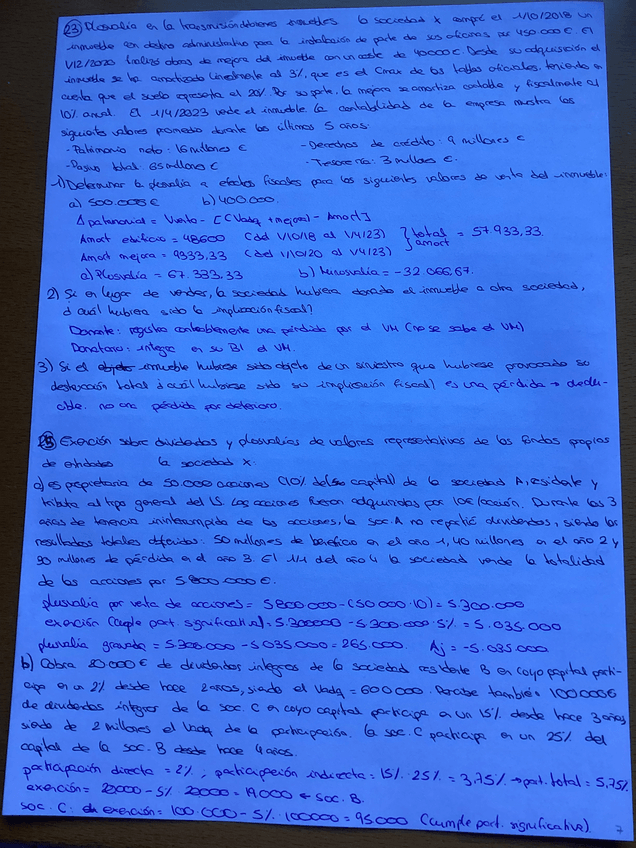 23) Plusvalía en la transmisión de bienes inmuebles la sociedad X compró el 1/10/2018 un
inmueble con destino administrativo para la instalación de parte de sus oficinas por 450.000€. El
1/12/2020 realizó obras de mejora del inmueble con un coste de 40000€. Desde su adquisición el
inmueble se ha amortizado linealmente al 3%, que es el Cmax de las tablas oficiales, teniendo en
cuenta que el suelo representa el 20%. Por su parte, la mejora se amortiza contable y fiscalmente al
10% anual. El 1/4/2023 vende el inmueble la contabilidad de la empresa muestra los
siguientes valores promedio durante los últimos 5 años:
- Patrimonio neto: 16 millones € - Derechos de crédito: 9 millones €
- Pasivo total: 65 millones € - Tesorería: 3 millones €.
1) Determinar la plusvalía a efectos fiscales para los siguientes valores de venta del inmueble:
a) 500.000€ b) 400.000.
Δ patrimonial = Vventa - [(Vadq + mejora) - Amort]
Amort edificio = 48600 (del 1/10/18 al 1/4/23) } total amort = 57.933,33.
Amort mejora = 9333,33 (del 1/10/20 al 1/4/23)
a) Plusvalía = 67.333,33 b) Minusvalía = -32.066,67.
2) Si en lugar de vender, la sociedad hubiera donado el inmueble a otra sociedad,
¿cuál hubiera sido la implicación fiscal?
Donante: registra contablemente una pérdida por el VM (no se sabe el VM)
Donatario: integra en su BI el VM.
3) Si el inmueble hubiese sido objeto de un siniestro que hubiese provocado su
destrucción total ¿cuál hubiese sido su implicación fiscal? es una pérdida → dedu-
cible. no una pérdida por deterioro.
25) Exención sobre dividendos y plusvalías de valores representativos de los fondos propios
de entidades la sociedad X:
a) es propietaria de 50.000 acciones (10% del capital) de la sociedad A, residente y
tributa al tipo general del IS. Las acciones fueron adquiridas por 10€/acción. Durante los 3
años de tenencia ininterrumpida de las acciones, la soc. A no repartió dividendos, siendo los
resultados totales obtenidos: 50 millones de beneficio en el año 1, 40 millones en el año 2 y
90 millones de pérdida en el año 3. El 1/1 del año 4 la sociedad vende la totalidad
de las acciones por 5.800.000€.
plusvalía por venta de acciones = 5.800.000 - (50.000·10) = 5.300.000
exención (cumple part. significativa) = 5.300000 - 5.300.000·5% = 5.035.000
plusvalía gravada = 5.300.000 - 5.035.000 = 265.000. Aj = -5.035.000.
b) Cobra 20000€ de dividendos íntegros de la sociedad residente B en cuyo capital parti-
cipa en un 2% desde hace 2 años, siendo el Vadq = 600.000. Percibe también 100000€
de dividendos íntegros de la soc. C en cuyo capital participa en un 15% desde hace 3 años,
siendo de 2 millones el Vadq de la participación. La soc. C participa en un 25% del
capital de la soc. B desde hace 4 años.
participación directa = 2%, participación indirecta = 15%·25% = 3,75% → part. total = 5,75%
exención = 20000 - 5%·20000 = 19.000 ← Soc. B.
soc. C: exención = 100.000 - 5%·100000 = 95000 (cumple part. significativa).
7